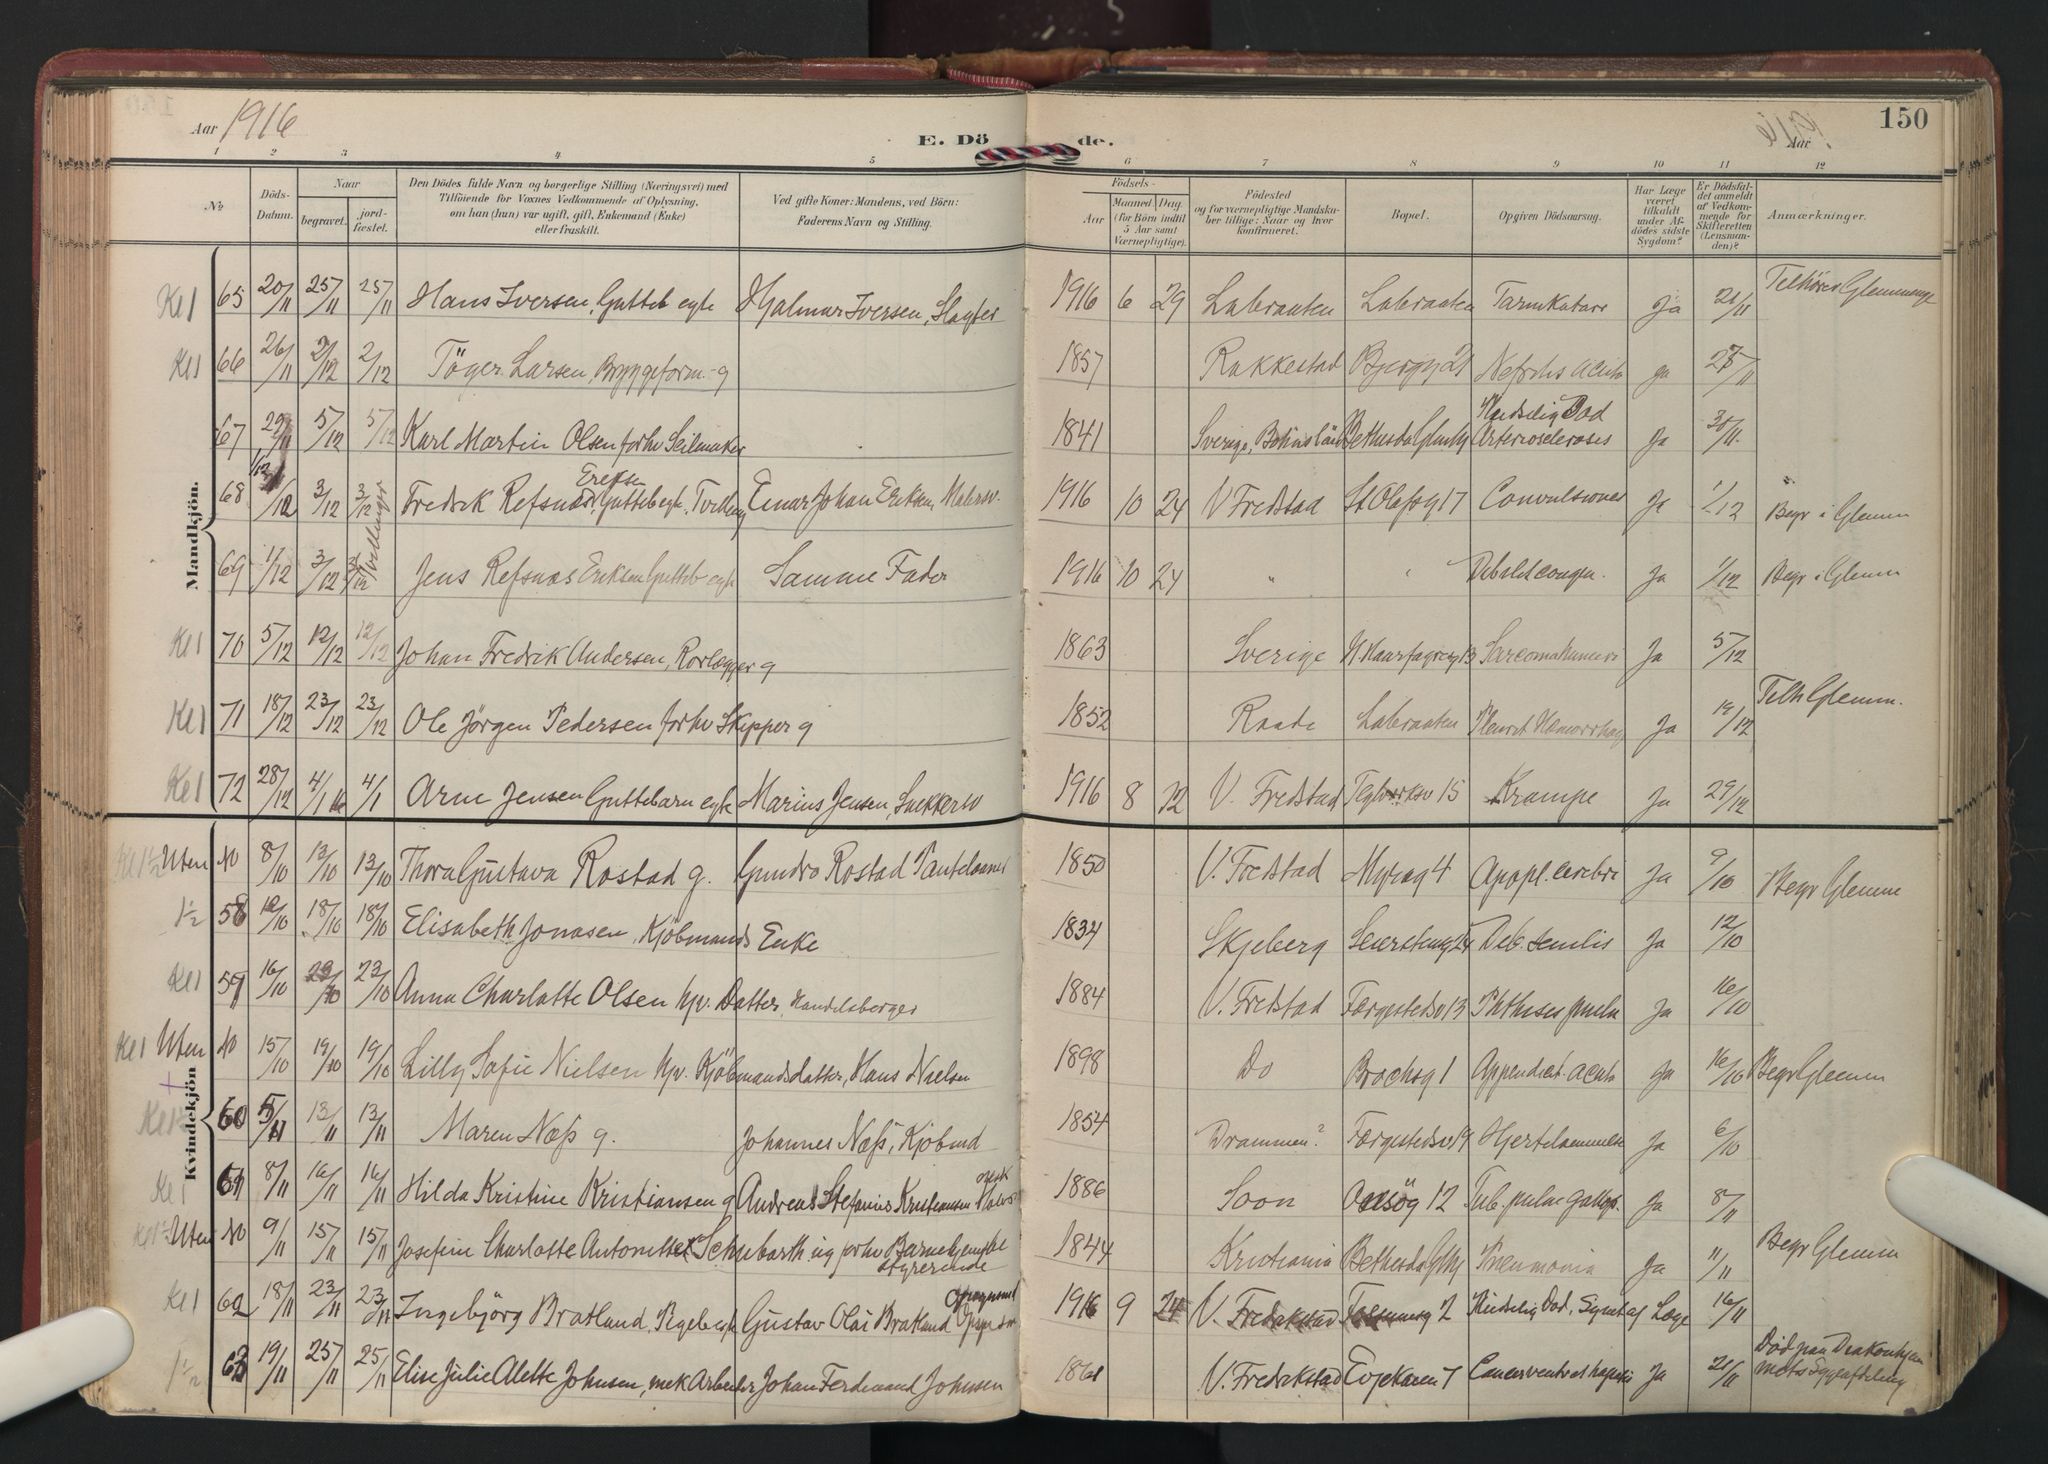 Aar 1916
E. Dö de.
1916 Aar
150
1 2 3 4 5 6 7 8 9 10 11 12
No
Döds-Datum.
Naar
begravet.
jord-fæstet.
Den Dödes fulde Navn og borgerlige Stilling (Næringsvei) med
Tilföiende for Voxnes Vedkommende af Oplysning,
om han (hun) var ugift, gift, Enkemand (Enke)
eller fraskilt.
Ved gifte Koner: Mandens, ved Börn:
Faderens Navn og Stilling.
Födsels-
Aar
Maaned Dag.
(for Börn indtil
5 Aar samt
Værnepligtige).
Födested
og for værnepligtige Mandska-
ber tillige: Naar og hvor
konfirmeret.
Bopæl.
Opgiven Dödsaarsag.
Har Læge
været
tilkaldt
under Af-
dödes sidste
Sygdom?
Er Dödsfal-
det anmeldt
af Vedkom-
mende for
Skifteretten
(Lensman-
den)?
Anmærkninger.
Mandkjön.
Kl 1 65 20/11 25/11 25/11 Hans Iversen, Gutteb egte Hjalmar Iversen, Slagter 1916 6 29 Labraaten Labraaten Tarmkatarr Ja 21/11 Telhörer Glemmenge
Kl 1 66 26/11 2/12 2/12 Töger Larsen, Bryggeform. g 1857 Rakkestad Nefritis acuta ja 27/11
67 29/11 5/12 5/12 Karl Martin Olsen forhv Seilmaker 1841 Sverige, Bohuslän Bethesda Glemg Pludselig Död Arteriosclerosis Ja 30/11
68 1/12 3/12 3/12 Fredrik Refsnæs Eriksen Guttebegte, Tvilling Einar Johan Eriksen, Malersv. 1916 10 24 V Fredstad St Olafsg 17 Convulsioner Ja 1/12 Begr i Glemm
69 1/12 3/12 3/12 Tvillinger Jens Refsnæs Eriksen Gutteb egte Samme Fader 1916 10 24 " " Debilit congen. Ja 1/12 Begr i Glemm
Kl 1 70 5/12 12/12 12/12 Johan Fredrik Andersen, Rorlægger g 1863 Sverige H. Haarfagresg 13 Sarcoma humeri Ja 5/12
Kl 1 71 18/12 23/12 23/12 Ole Jörgen Pedersen forhv Skipper g 1852 Raade Labraaten Pleurit Hæmorrhag Ja 19/12 Telh Glemm.
Kl 1 72 28/12 4/1 4/1 Arne Jensen Guttebarn egte Marius Jensen, Snekkersv 1916 8 V. Fredstad Teglverksv 15 Krampe Ja 29/12
Kvindekjön
Kl 1½ Uten No 8/10 13/10 13/10 Thora Gustava Rostad g. Gundro Rostad Pantelaaner 1850 V. Fredstad Myrag 4 Apopl. cerebri Ja 9/10 Begr Glemm
1½ 58 18/10 18/10 Elisabeth Jonasen, Kjöbmands Enke 1834 Skjeberg Deb. senilis Ja 12/10
Kl 1 59 16/10 23/10 23/10 Anna Charlotte Olsen hjv. Datter, Handelsborger 1884 V. Fredstad Færgestedsv 13 Phthisis pulm Ja 16/10
Kl 1 Uten No 15/10 19/10 19/10 Lilly Sofie Nielsen hjv. Kjöbmandsdatter, Hans Nielsen 1898 Do Brochsg 1 Appendicit. acuta Ja 16/10 Begr Glemm
Kl 1½ 60 5/11 13/11 13/11 Maren Næss g. Johannes Næss, Kjöbmd 1854 Drammen? Færgestedsv 19 Hjertelammelse Ja 6/10
Kl 1 61 8/11 16/11 16/11 Hilda Kristine Kristiansen g Andreas Stefanius Kristiansen 1886 Soon 12 Tub. pulm Ja 8/11
Kl 1½ Uten No 9/11 15/11 15/11 Josefine Charlotte Antonette Schubarth ug forhv Barnehjems bestyrerinde 1844 Kristiania Bethesda Glemg Pneumonia Ja 11/11 Begr Glemm
Kl 1 62 18/11 23/11 23/11 Ingebjörg Bratland, Pigeb egte Gustav Olai Bratland 1916 9 24 V. Fredrikstad 2 Pludselig Död, Læge 16/11
1½ 63 19/11 25/11 25/11 Elise Julie Alette Johnsen, mek Arbeider Johan Ferdinand Johnsen 1861 V. Fredrikstad 7 Cancer ventriculi Ja 21/11 Död paa Diakonhjemmets Sygeafdeling